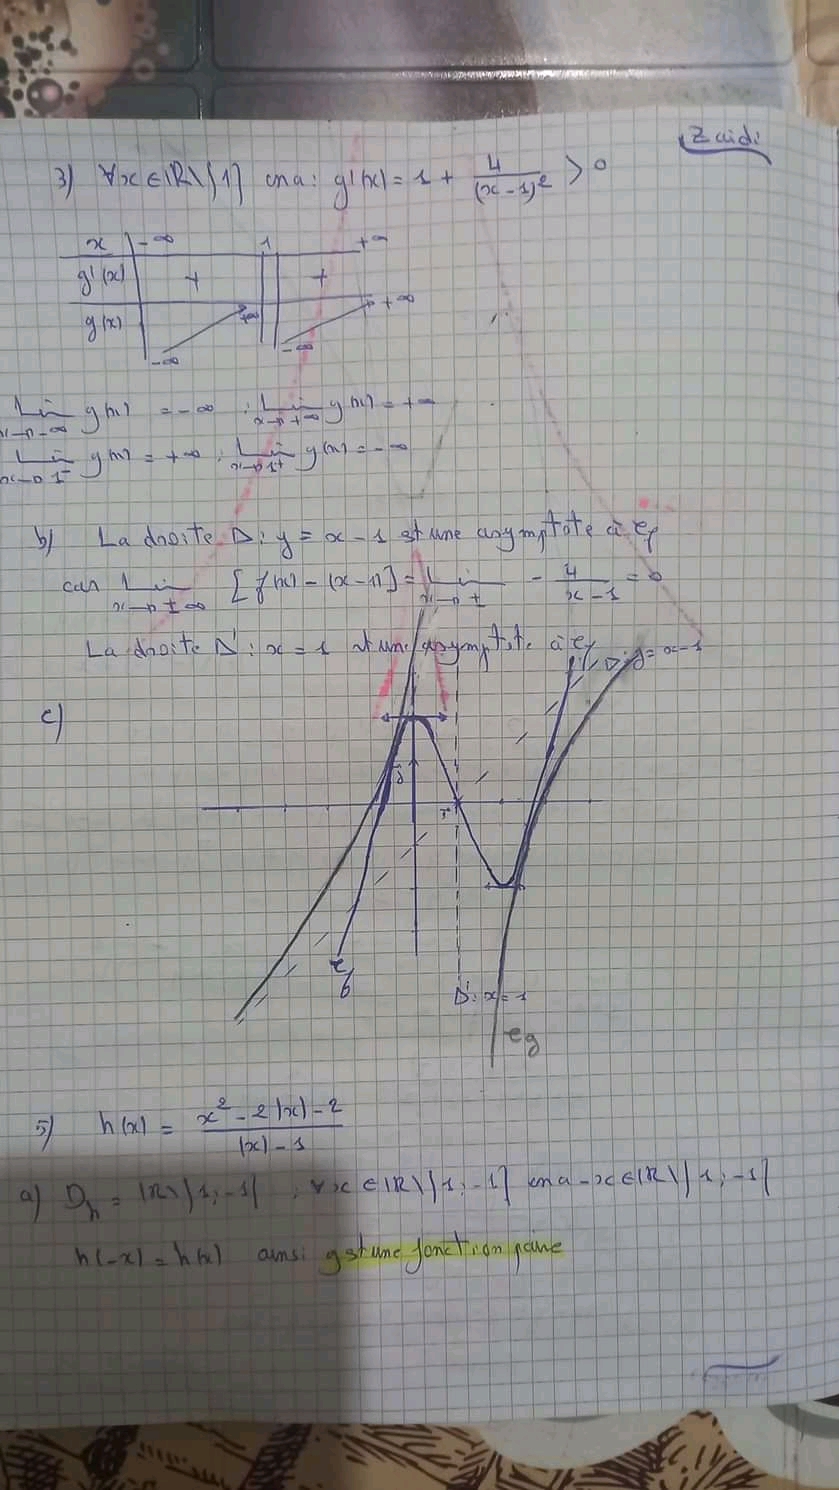 Zaidi
3) ∀x∈ℝ\{1} ona: g'(x) = 1 + 4/(x-1)² > 0
x -∞ 1 +∞
g'(x) + +
g(x) -∞ +∞ -∞ +∞
Lim g(x) = -∞ ; Lim g(x) = +∞
x→-∞ x→+∞
Lim g(x) = +∞ ; Lim g(x) = -∞
x→1⁻ x→1⁺
b) La droite Δ: y = x - 1 est une asymptote à
car Lim [f(x) - (x-1)] = Lim - 4/(x-1) = 0
x→±∞
La droite Δ': x = 1 est une asymptote à
Δ: y = x-1
c)
j
i
Δ': x = 1
Cg
5) h(x) = (x² - 2|x| - 2)/(|x| - 1)
a) Dh = ℝ\{1; -1} , ∀x∈ℝ\{1; -1} ona -x∈ℝ\{1; -1}
h(-x) = h(x) ainsi g est une fonction paire